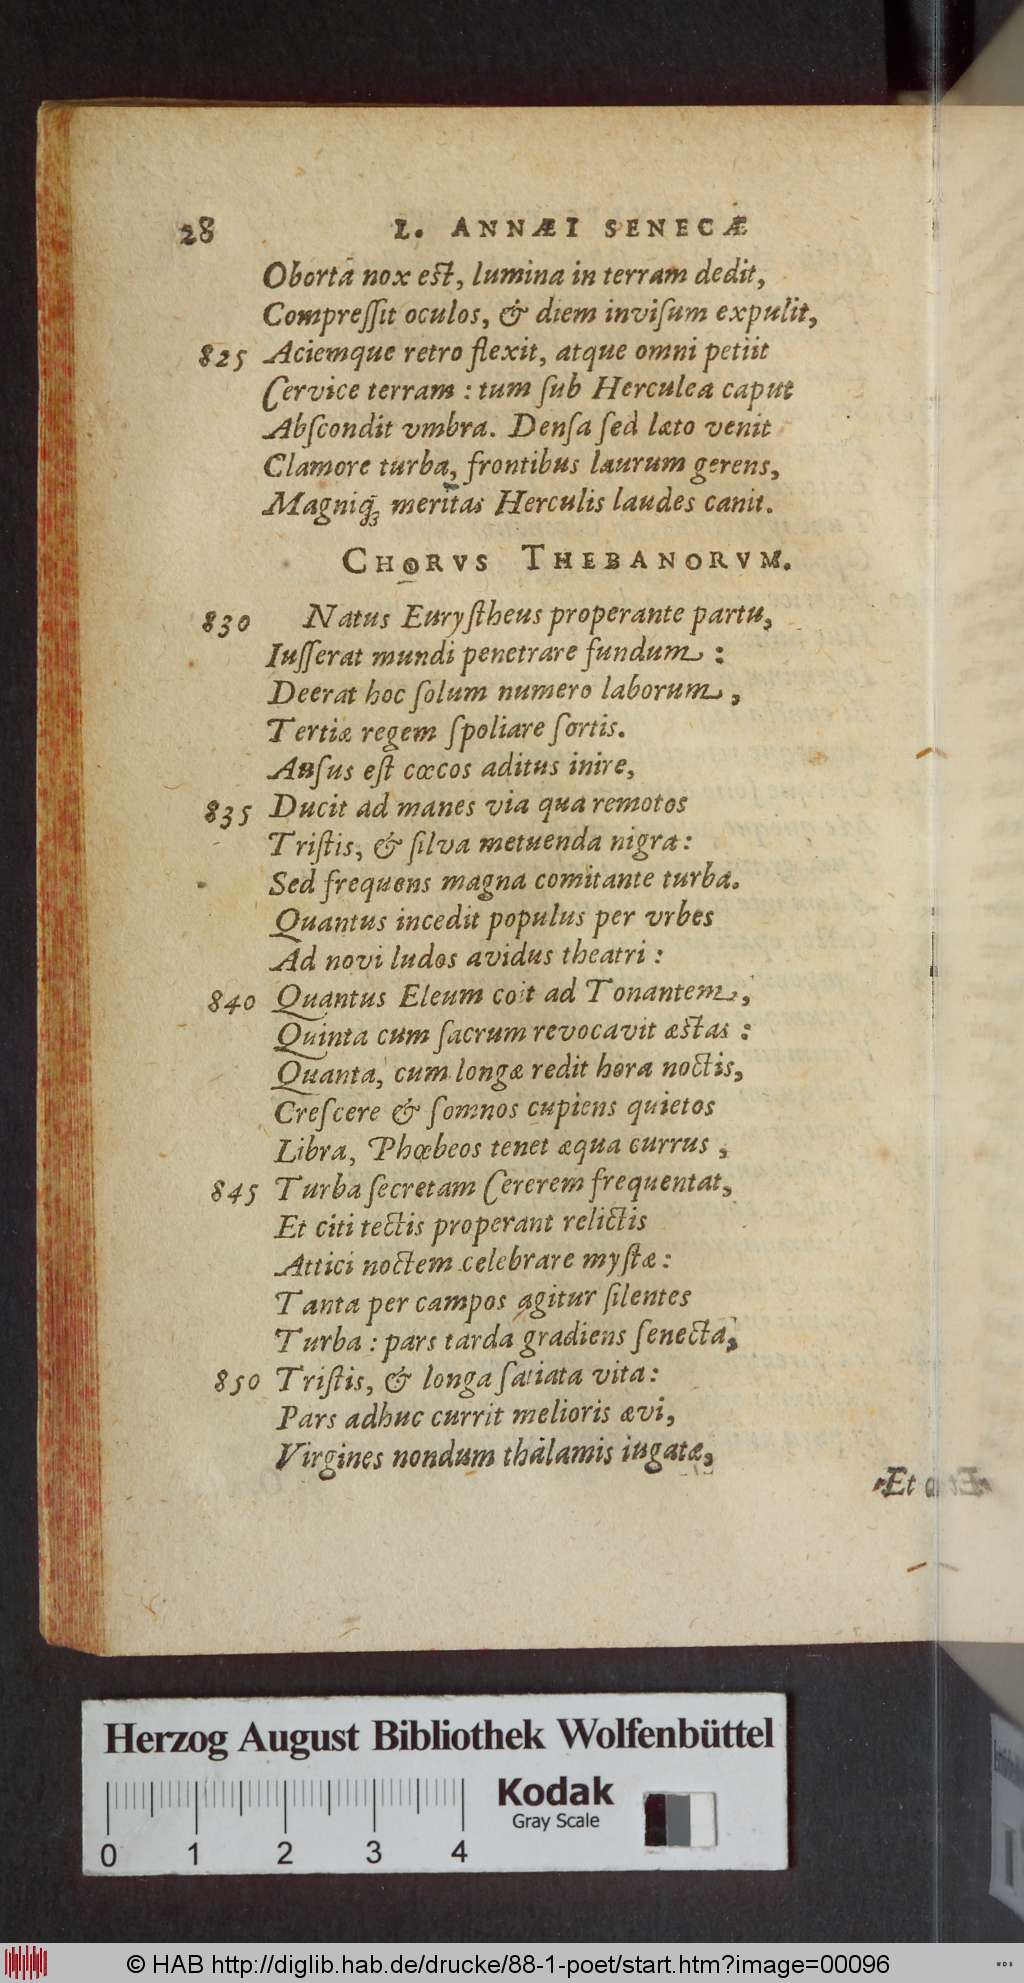 28 L. ANNÆI SENECÆ
Oborta nox est, lumina in terram dedit,
Compreſſit oculos, & diem inviſum expulit,
825 Aciemque retro flexit, atque omni petiit
Cervice terram : tum ſub Herculea caput
Abſcondit vmbra. Denſa ſed læto venit
Clamore turba, frontibus laurum gerens,
Magniq́ꝫ meritas Herculis laudes canit.
CHORVS THEBANORVM.
830 Natus Euryſtheus properante partu,
Iuſſerat mundi penetrare fundum :
Deerat hoc ſolum numero laborum ,
Tertiæ regem ſpoliare ſortis.
Auſus eſt cœcos aditus inire,
835 Ducit ad manes via qua remotos
Triſtis, & ſilva metuenda nigra:
Sed frequens magna comitante turba.
Quantus incedit populus per vrbes
Ad novi ludos avidus theatri :
840 Quantus Eleum coit ad Tonantem ,
Quinta cum ſacrum revocavit æstas :
Quanta, cum longæ redit hora noctis,
Creſcere & ſomnos cupiens quietos
Libra, Phœbeos tenet æqua currus ,
845 Turba ſecretam Cererem frequentat,
Et citi tectis properant relictis
Attici noctem celebrare myſtæ :
Tanta per campos agitur ſilentes
Turba : pars tarda gradiens ſenecta,
850 Triſtis, & longa ſatiata vita :
Pars adhuc currit melioris ævi,
Virgines nondum thalamis iugatæ,
Et
Herzog August Bibliothek Wolfenbüttel
Kodak
Gray Scale
0 1 2 3 4
© HAB http://diglib.hab.de/drucke/88-1-poet/start.htm?image=00096